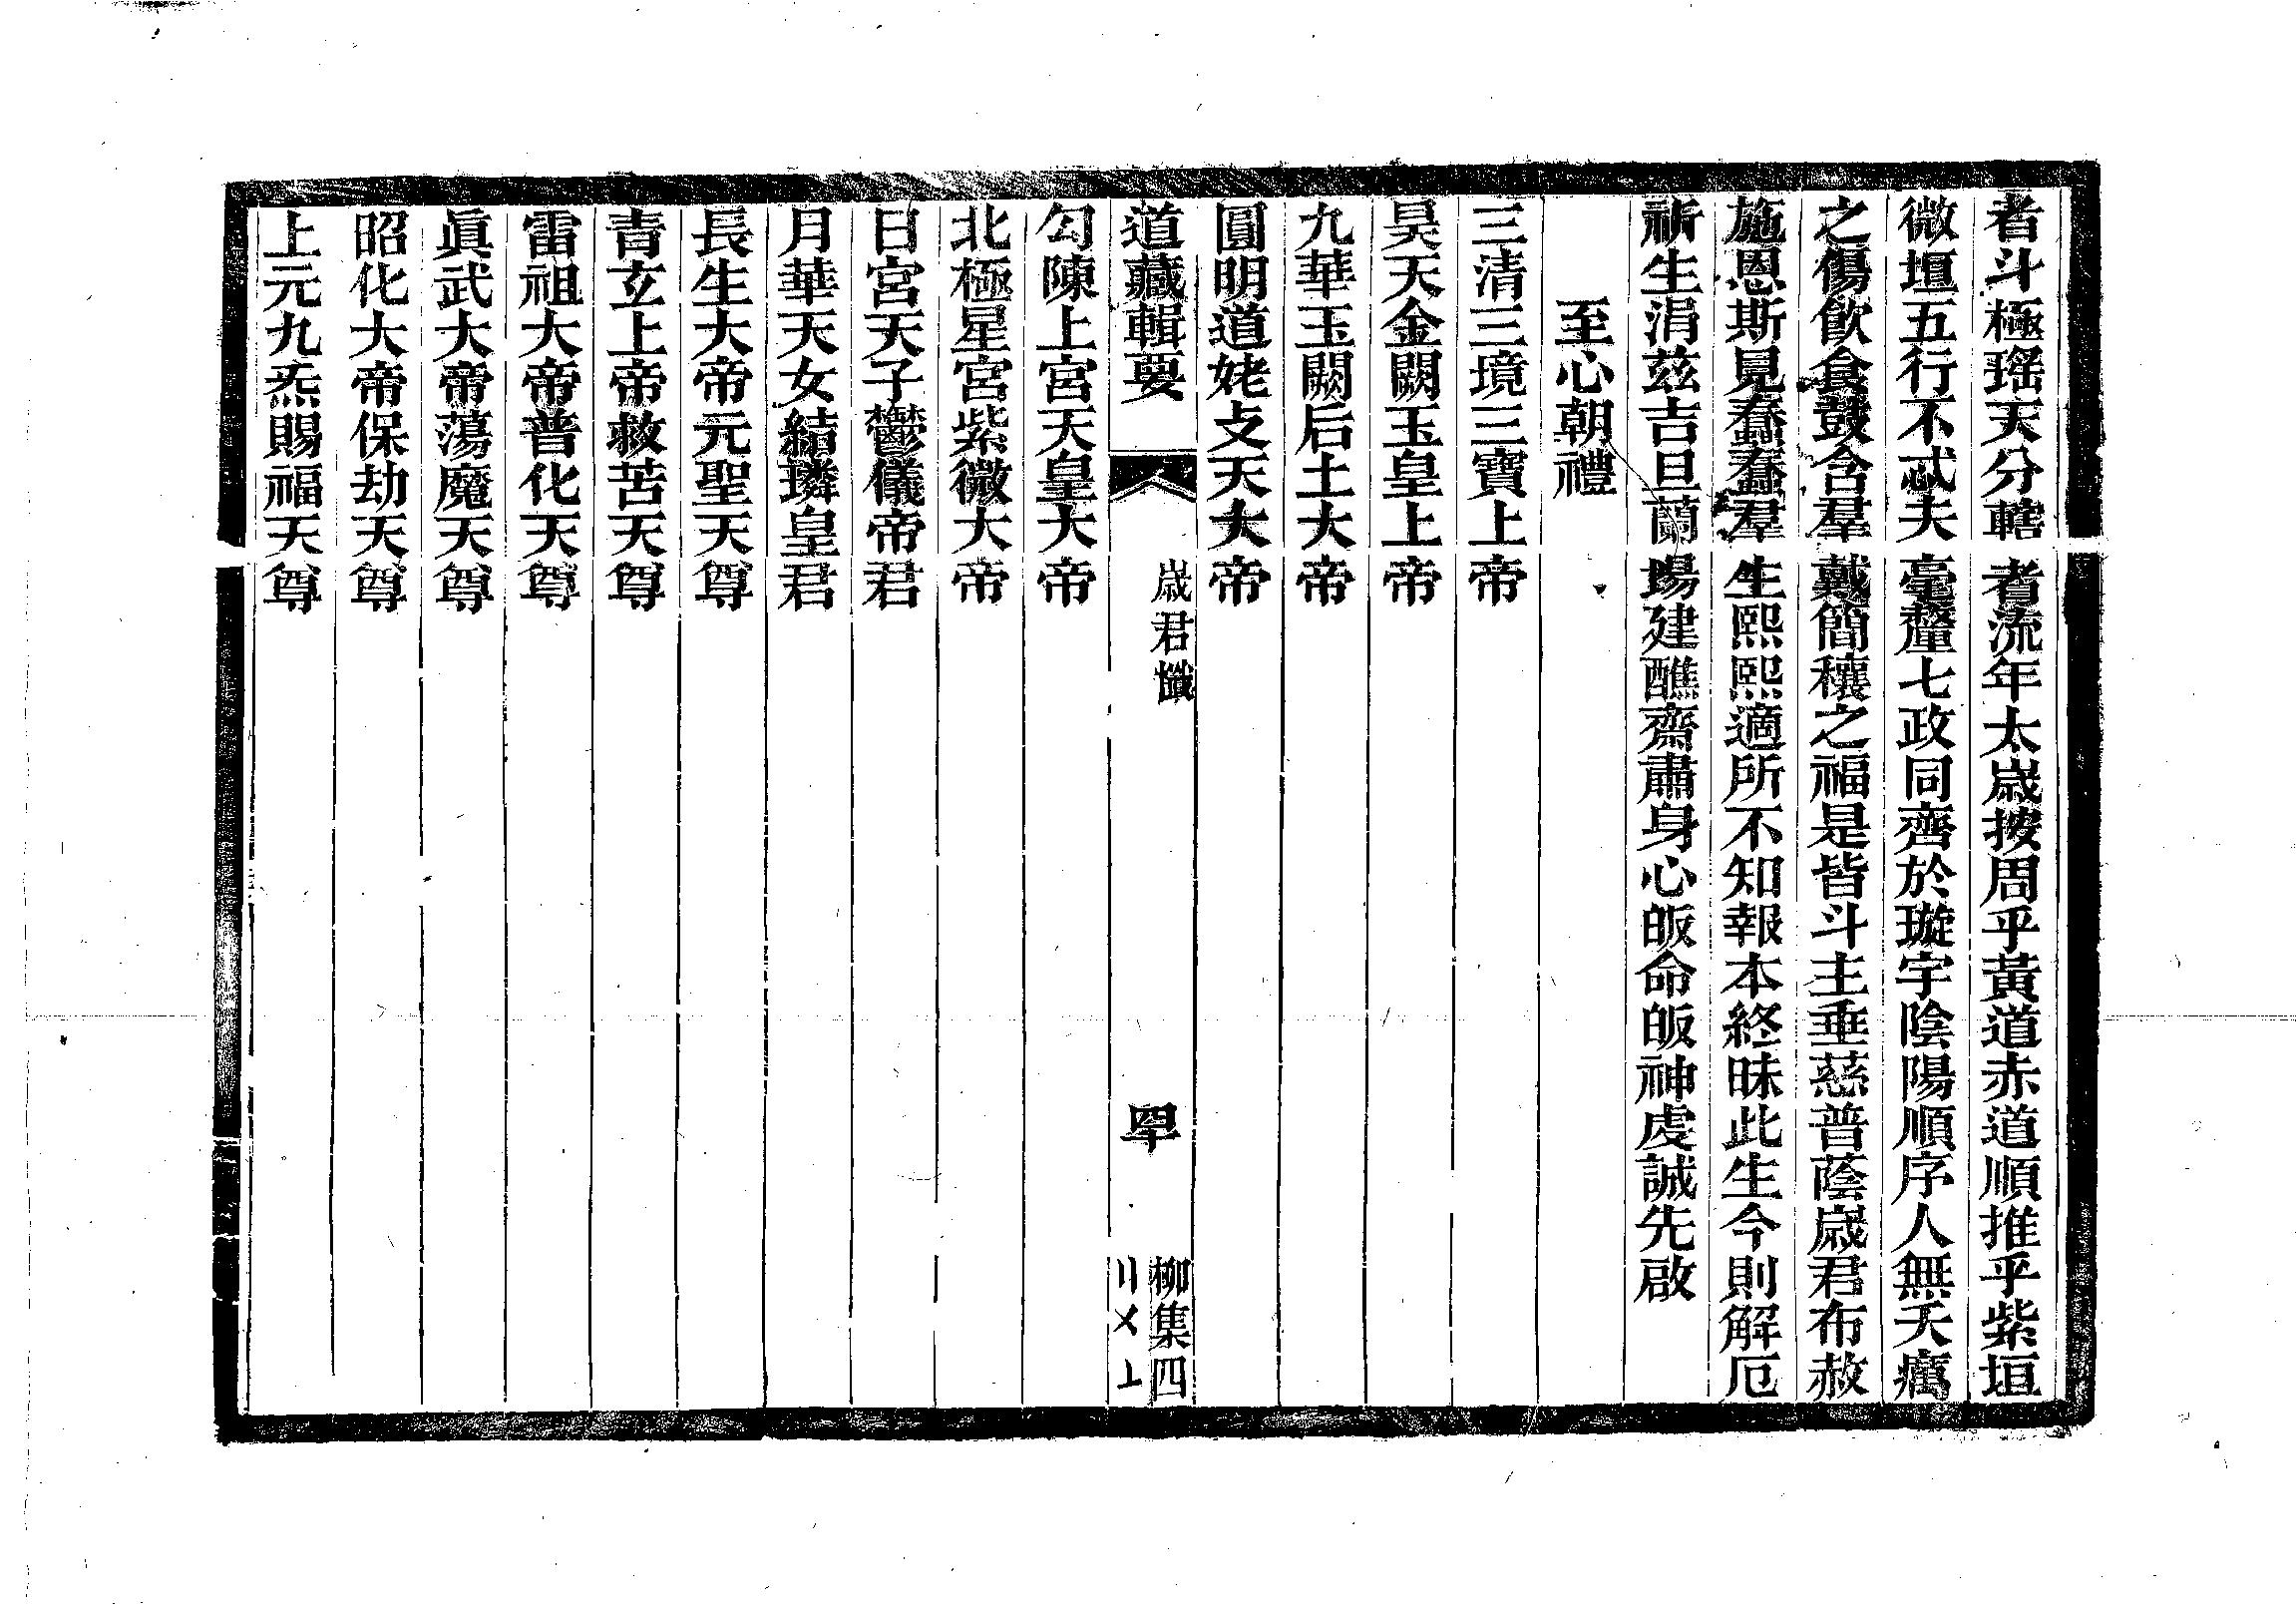 者斗極瑶天分轄者流年太歲按周乎黃道赤道順推乎紫垣
微垣五行不忒夫毫釐七政同齊於璇宇陰陽順序人無夭癘
之傷飲食鼓含羣戴簡穰之福是皆斗主垂慈普蔭歲君布赦
施恩斯見蠢蠢羣生熙熙適所不知報本終昧此生今則解厄
祈生涓茲吉旦蘭場建醮齋肅身心皈命皈神虔誠先啟
至心朝禮
三清三境三寶上帝
昊天金闕玉皇上帝
九華玉闕后土大帝
圓明道姥攴天大帝
道藏輯要
歲君懺
罕
柳集四
〢〤〦
勾陳上宮天皇大帝
北極星宮紫微大帝
日宮天子鬱儀帝君
月華天女結璘皇君
長生大帝元聖天尊
青玄上帝救苦天尊
雷祖大帝普化天尊
眞武大帝蕩魔天尊
昭化大帝保劫天尊
上元九炁賜福天尊